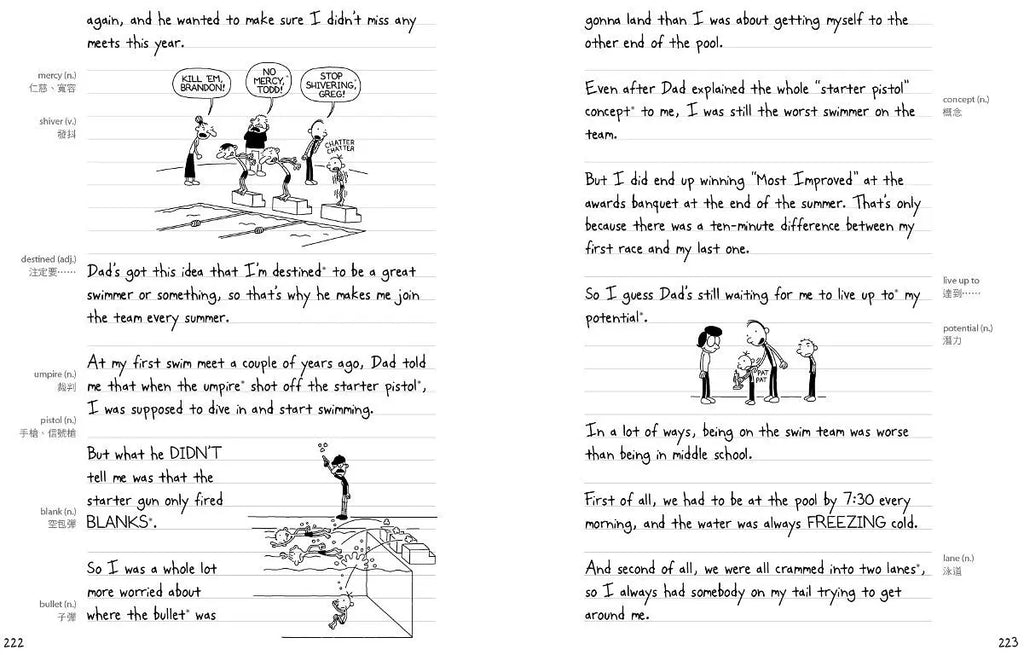 again, and he wanted to make sure I didn't miss any
meets this year.
mercy (n.)
仁慈、寬容
KILL 'EM,
BRANDON!
NO
MERCY,
TODD!
STOP
SHIVERING,
GREG!
shiver (v.)
發抖
CHATTER
CHATTER
destined (adj.)
注定要……
Dad's got this idea that I'm destined* to be a great
swimmer or something, so that's why he makes me join
the team every summer.
At my first swim meet a couple of years ago, Dad told
umpire (n.)
裁判
me that when the umpire* shot off the starter pistol*,
I was supposed to dive in and start swimming.
pistol (n.)
手槍、信號槍
But what he DIDN'T
tell me was that the
starter gun only fired
BLANKS*.
blank (n.)
空包彈
So I was a whole lot
more worried about
where the bullet* was
bullet (n.)
子彈
222
gonna land than I was about getting myself to the
other end of the pool.
Even after Dad explained the whole "starter pistol"
concept* to me, I was still the worst swimmer on the
team.
concept (n.)
概念
But I did end up winning "Most Improved" at the
awards banquet at the end of the summer. That's only
because there was a ten-minute difference between my
first race and my last one.
So I guess Dad's still waiting for me to live up to* my
potential*.
live up to
達到……
potential (n.)
潛力
PAT
PAT
In a lot of ways, being on the swim team was worse
than being in middle school.
First of all, we had to be at the pool by 7:30 every
morning, and the water was always FREEZING cold.
And second of all, we were all crammed into two lanes*,
so I always had somebody on my tail trying to get
around me.
lane (n.)
泳道
223